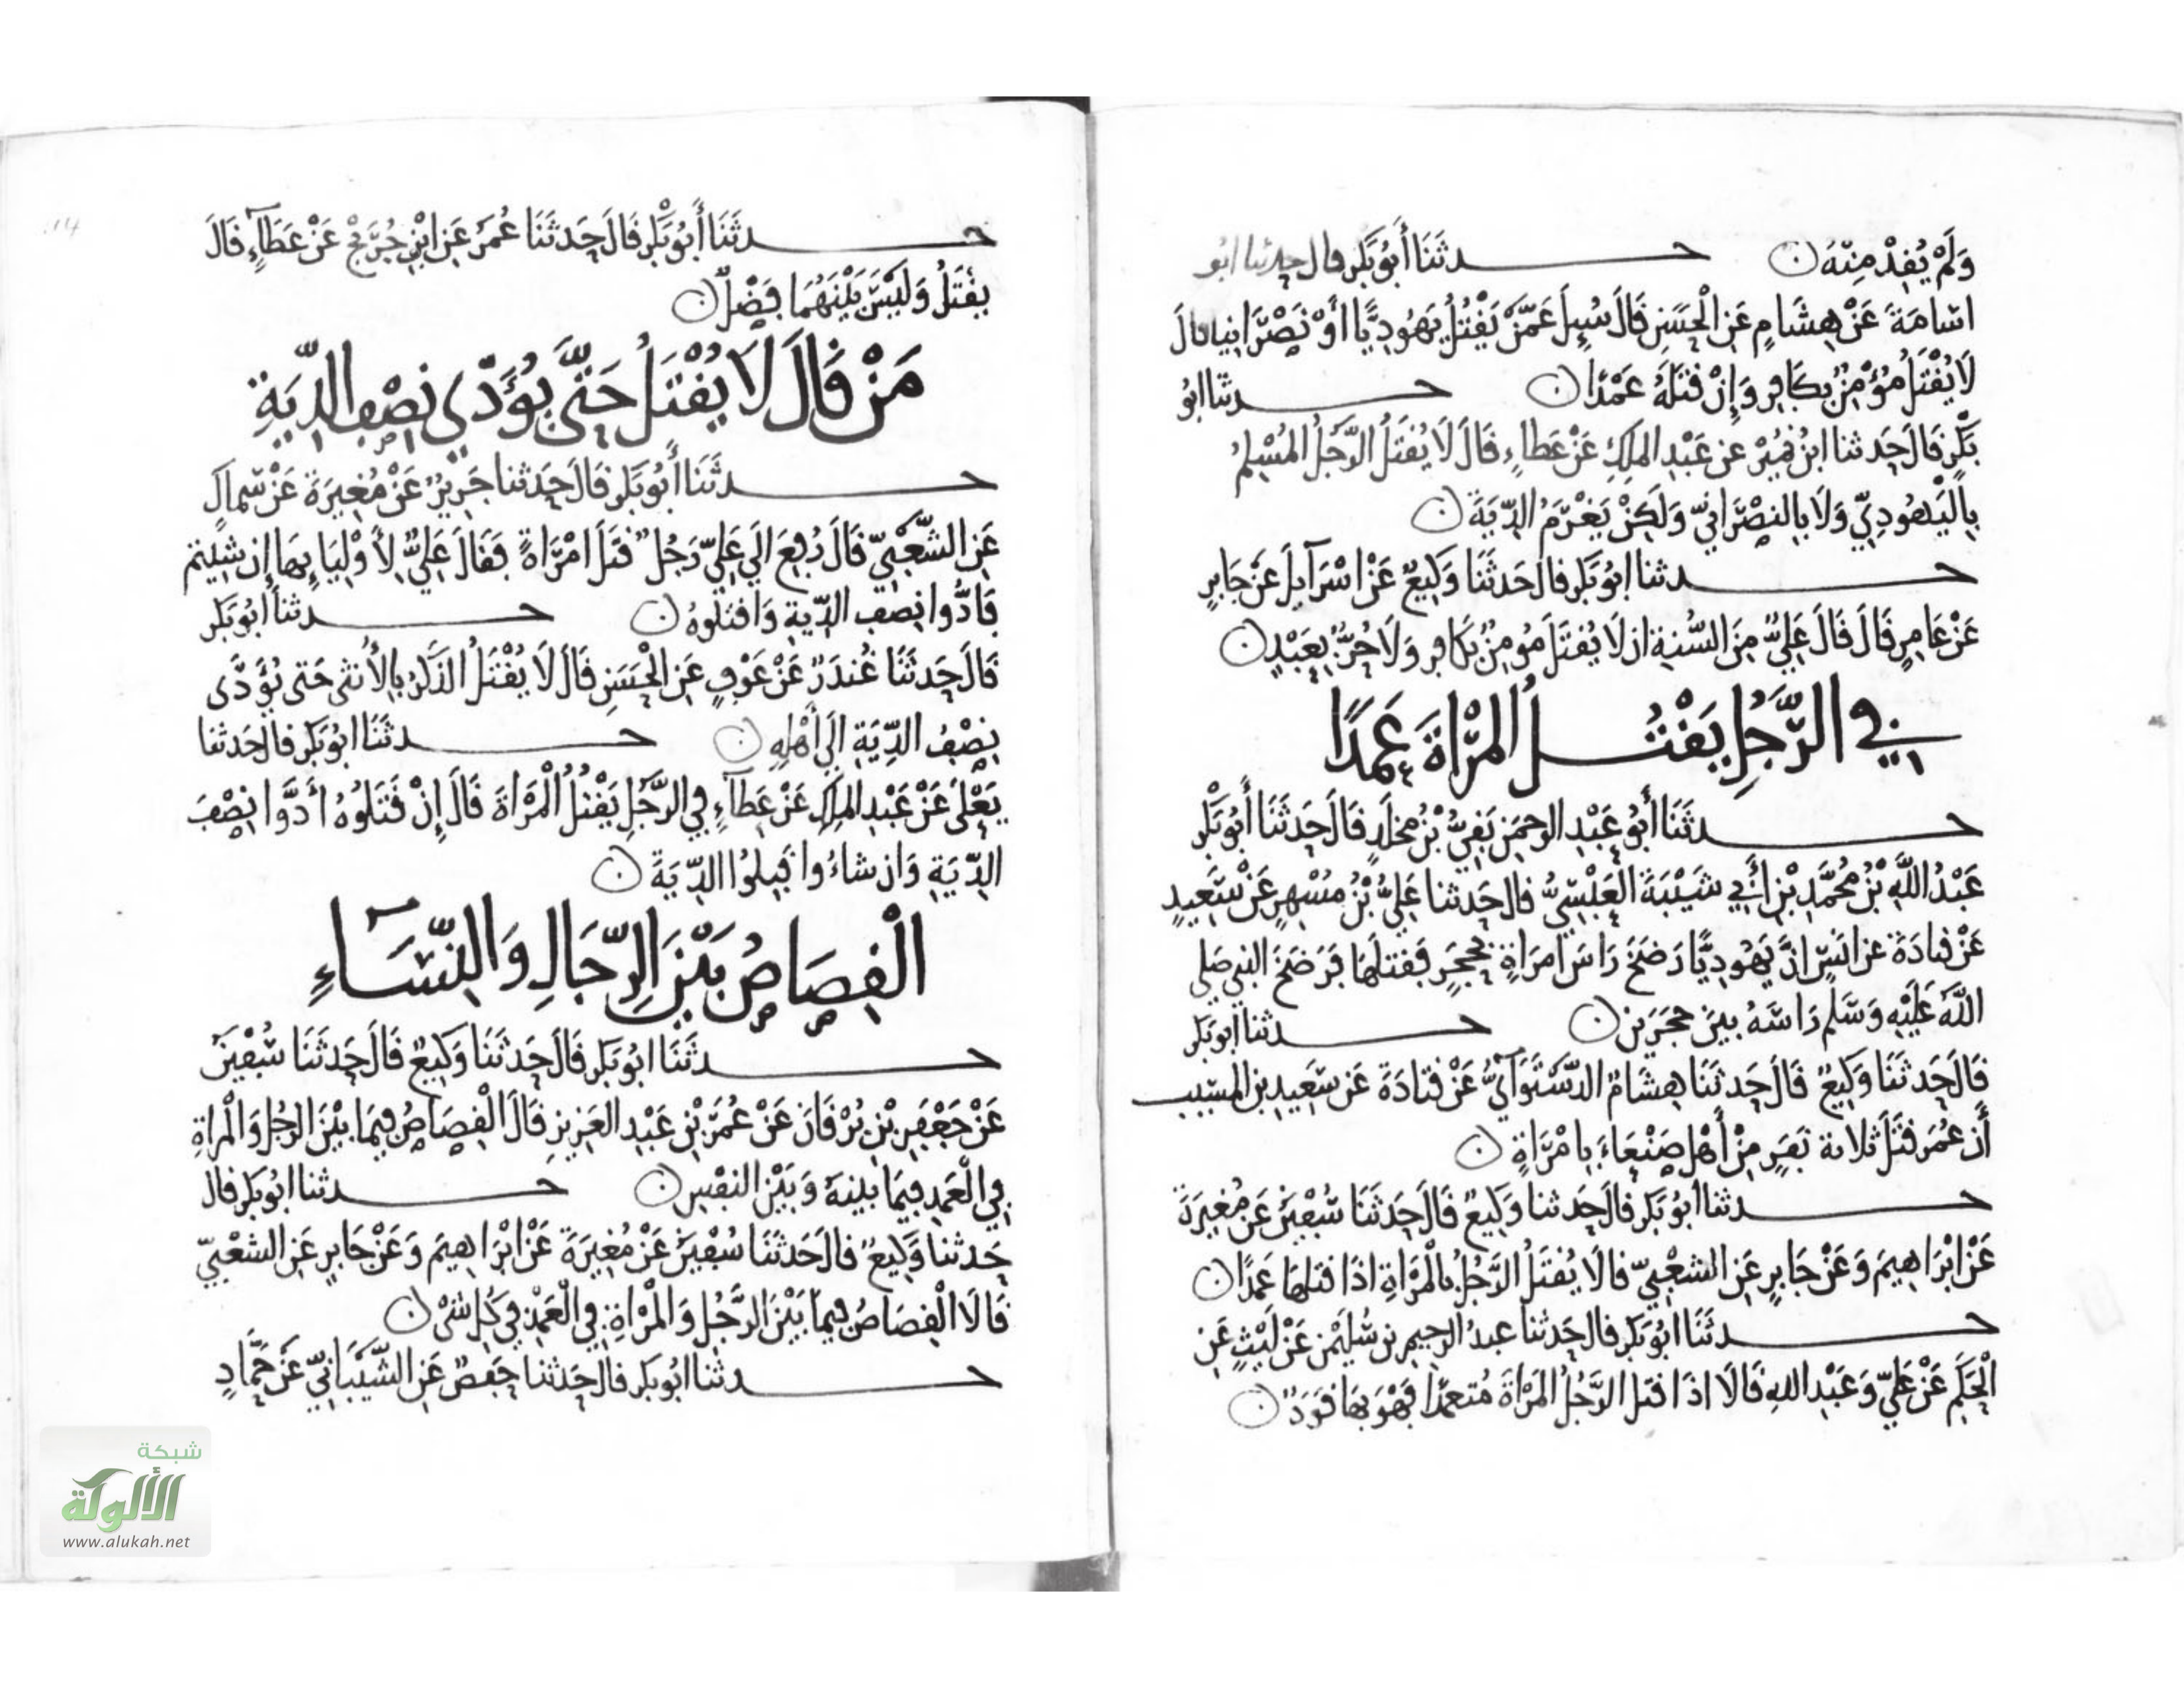 وَلَمْ يُقِدْ مِنْهُ حدثَنَا أَبُو بَكْرٍ قال حدثنا ابو
اسَامَةَ عَنْ هِشَامٍ عَنِ الْحَسَنِ قَالَ سُئِلَ عَمَّنْ يَقْتُلُ يَهُودِيًّا أَوْ نَصْرَانِيا قالَ
لَا يُقْتَلُ مُؤْمِنٌ بِكَافِرٍ وَإِنْ قَتَلَهُ عَمْدًا حدثنا ابُو
بَكْرٍ قَالَ حَدثنا ابْنُ نُمَيْرٍ عن عَبْدِ المَلِكِ عَنْ عَطاءٍ قَالَ لَا يُقْتَلُ الرَّجُلُ المُسْلِمُ
بِالْيَهُودِيِّ وَلَا بِالنصْرَانِيِّ وَلَكِنْ يَغْرَمُ الدِّيَةَ
حدثنا ابُو بَكْرٍ قالَ حَدثَنَا وَكِيعٌ عَنْ اسْرَآيِلَ عَنْ جَابِرٍ
عَنْ عَامِرٍ قَالَ قَالَ عَلِيٌّ مِنَ السُّنةِ ان لَا يُقْتَلَ مُومِنٌ بِكَافِرٍ وَلَا حُرٌّ بِعَبْدٍ
فِي الرَّجُلِ يَقْتُلُ المَرْأَةَ عَمْدًا
حدثَنَا أَبُو عَبْدِ الرحمَنِ بَقِيُّ بْنُ مَخْلَدٍ قَالَ حَدثَنَا أَبُو بَكْرٍ
عَبْدُ اللَّهِ بْنُ مُحَمَّدِ بْنِ أَبِي شَيْبَةَ الْعَبْسِيُّ قال حَدثنا عَلِيُّ بْنُ مُسْهِرٍ عَنْ سَعِيدٍ
عَنْ قتادَةَ عن انَسٍ انَّ يَهُودِيًّا رَضَخَ رَاسَ امرَاةٍ بحَجَرٍ فَقتلَهَا فَرَضَخَ النبي صَلى
اللَّهُ عَلَيْهِ وَسَلم رَاسَهُ بينَ حَجَرَينِ حدثنا ابُو بَكر
قَالَ حَدثَنَا وَكِيعٌ قَالَ حَدثَنَا هِشَامٌ الدَّسْتَوَآئِيُّ عَنْ قتادَةَ عَن سَعِيدِ بن المسَيب
أَن عُمَرَ قتَلَ ثلاثة نَفَرٍ مِنْ أَهْلِ صَنْعَاءَ بِامْرَأَةٍ
حدثنا ابُو بَكر قالَ حَدثنا وَكِيعٌ قَالَ حَدثَنَا سُفْينُ عَن مُغِيرَةَ
عَنْ ابْرَاهِيمَ وَعَنْ جَابِرٍ عَنِ الشعْبِيِّ قالا يُقتَلُ الرَّجُلُ بِالْمَرْاةِ اذَا قتلهَا عَمْدًا
حدثَنَا ابُو بَكرٍ قال حَدثنا عبدُ الرحِيمِ بن سُلَيْمٰن عَنْ لَيْثٍ عَنِ
الْحَكَمِ عَنْ عَلِيٍّ وَعَبْدِ اللهِ قَالَا اذَا قتل الرَّجُلُ المَرْاةَ مُتعمدًا فَهْوَ بِهَا قَوَدٌ
حدثَنَا أَبُو بَكْرٍ قَالَ حَدثَنَا عُمَرُ عَنِ ابْنِ جُرَيْجٍ عَنْ عَطَآءٍ قَالَ
يقْتَلُ وَلَيْسَ بَيْنَهُمَا فَضْلٌ
مَنْ قَالَ لَا يُقْتَلُ حَتَّى يُؤَدِّيَ نِصْفَ الدِّيَةِ
حدثَنَا أَبُو بَكرٍ قَالَ حَدثنا جَرِيرٌ عَنْ مُغِيرَةَ عَنْ سِماكٍ
عَنِ الشَّعْبِيِّ قَالَ رُفِعَ الَى عَلِيٍّ رَجُلٌ قَتَلَ امْرَاةً فَقَالَ عَلِيٌّ لِأَوْلِيَايِهَا إِن شِيتم
فَادُّوا نِصْفَ الدِّيةِ وَاقتلُوهُ حدثنا ابُو بَكر
قَالَ حَدثَنَا غُندَرٌ عَنْ عَوْفٍ عَنِ الْحَسَنِ قَالَ لَا يُقْتَلُ الذكَرُ بِالأُنثى حَتى يُؤَدَّى
نِصْفُ الدِّيَةِ الَى أَهْلِهِ حدثَنَا ابُو بَكر قال حَدثنا
يَعْلَى عَنْ عَبْدِ المَلِكِ عَنْ عَطَآءٍ فِي الرَّجُلِ يَقْتُلُ الْمَرْاةَ قَالَ إِنْ قَتَلُوهُ أَدَّوا نِصْفَ
الدِّيَةِ وَان شاءُوا قَبِلُوا الدِّيَةَ
الْقِصَاصُ بَيْنَ الرِّجَالِ وَالنِّسَآءِ
حدثَنَا ابُو بَكرٍ قَالَ حَدثَنَا وَكِيعٌ قَالَ حَدثَنَا سُفْينُ
عَنْ جَعْفَرِ بْنِ بُرْقَانَ عَنْ عُمَرَ بْنِ عَبْدِ العَزِيزِ قَالَ الْقِصَاصُ فِيمَا بَيْنَ الرجُلِ وَالْمرأةِ
فِي الْعَمْدِ فِيمَا بينهُ وَبَيْنَ النفْسِ حدثنا ابُو بَكر قال
حَدثنا وَكِيعٌ قالَ حَدثَنَا سُفْينُ عَنْ مُغِيرَةَ عَنْ ابْرَاهِيمَ وَعَنْ جَابِرٍ عَنِ الشعْبِيِّ
قَالَا الْقِصَاصُ فِيمَا بَيْنَ الرَّجُلِ وَالْمَرْاةِ فِي الْعَمْدِ فِي كُلِّ شَيْ
حدثنا ابُو بَكر قال حَدثنا حَفصٌ عَنِ الشَّيْبَانِيِّ عَنْ حَمَّادٍ
شبكة
الألوكة
www.alukah.net